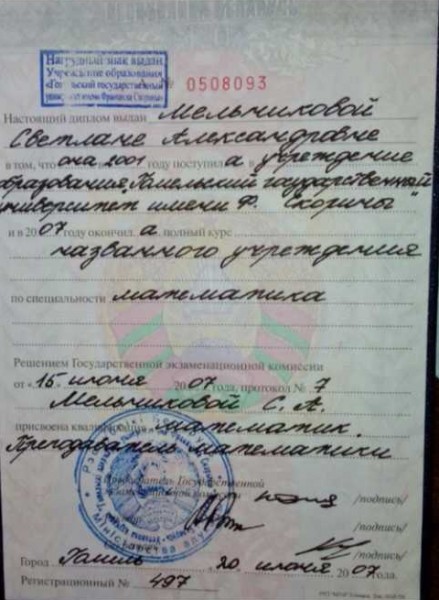 РЕСПУБЛИКА БЕЛАРУСЬ
Нагрудный знак выдан
Учреждение образования
«Гомельский государственный
университет имени Франциска Скорины»
А № 0508093
Настоящий диплом выдан Мельниковой
Светлане Александровне
в том, что она 2001 году поступила в учреждение
образования "Гомельский государственный
университет имени Ф. Скорины"
и в 2007 году окончила полный курс
названного учреждения
по специальности математика
Решением Государственной экзаменационной комиссии
от «15» июня 2007 года, протокол № 7
Мельниковой С. А.
присвоена квалификация математик.
Преподаватель математики
Председатель Государственной
экзаменационной комиссии
/подпись/
/подпись/
/подпись/
Город Гомель, 20 июня 2007 года.
Регистрационный № 497